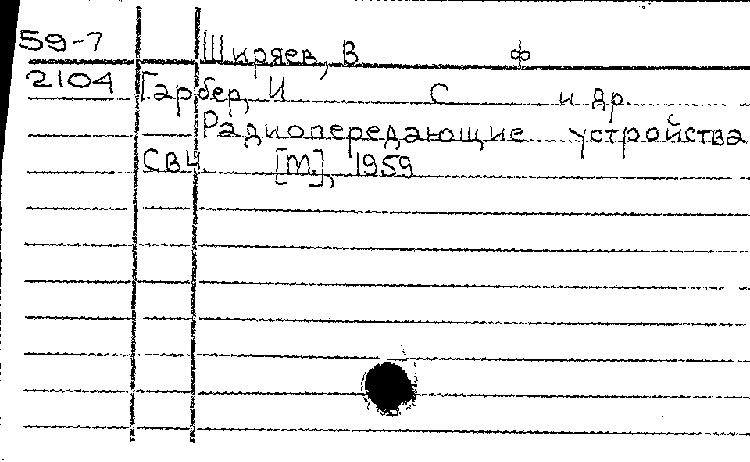 59-7 Ширяев, В Ф
2104 Гарбер, И С и др.
Радиопередающие устройства
СВЧ. [М.], 1959